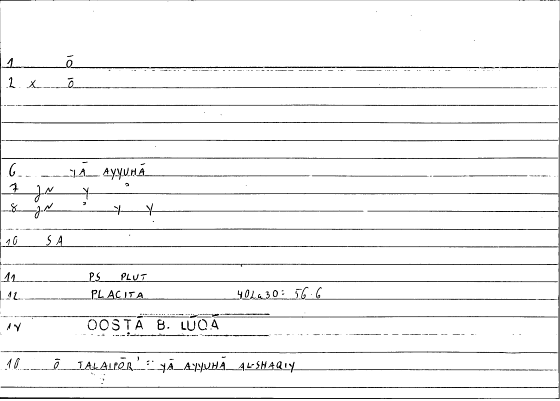 1 ō
2 x ō
6 YĀ AYYUHĀ
7 JN Y °
8 JN ° Y Y
10 SA
11 PS PLUT
12 PLACITA 402a30: 56.6
14 QOSṬĀ B. LŪQĀ
18 Ō TALAIPŌR': YĀ AYYUHĀ AL-SHAQIY